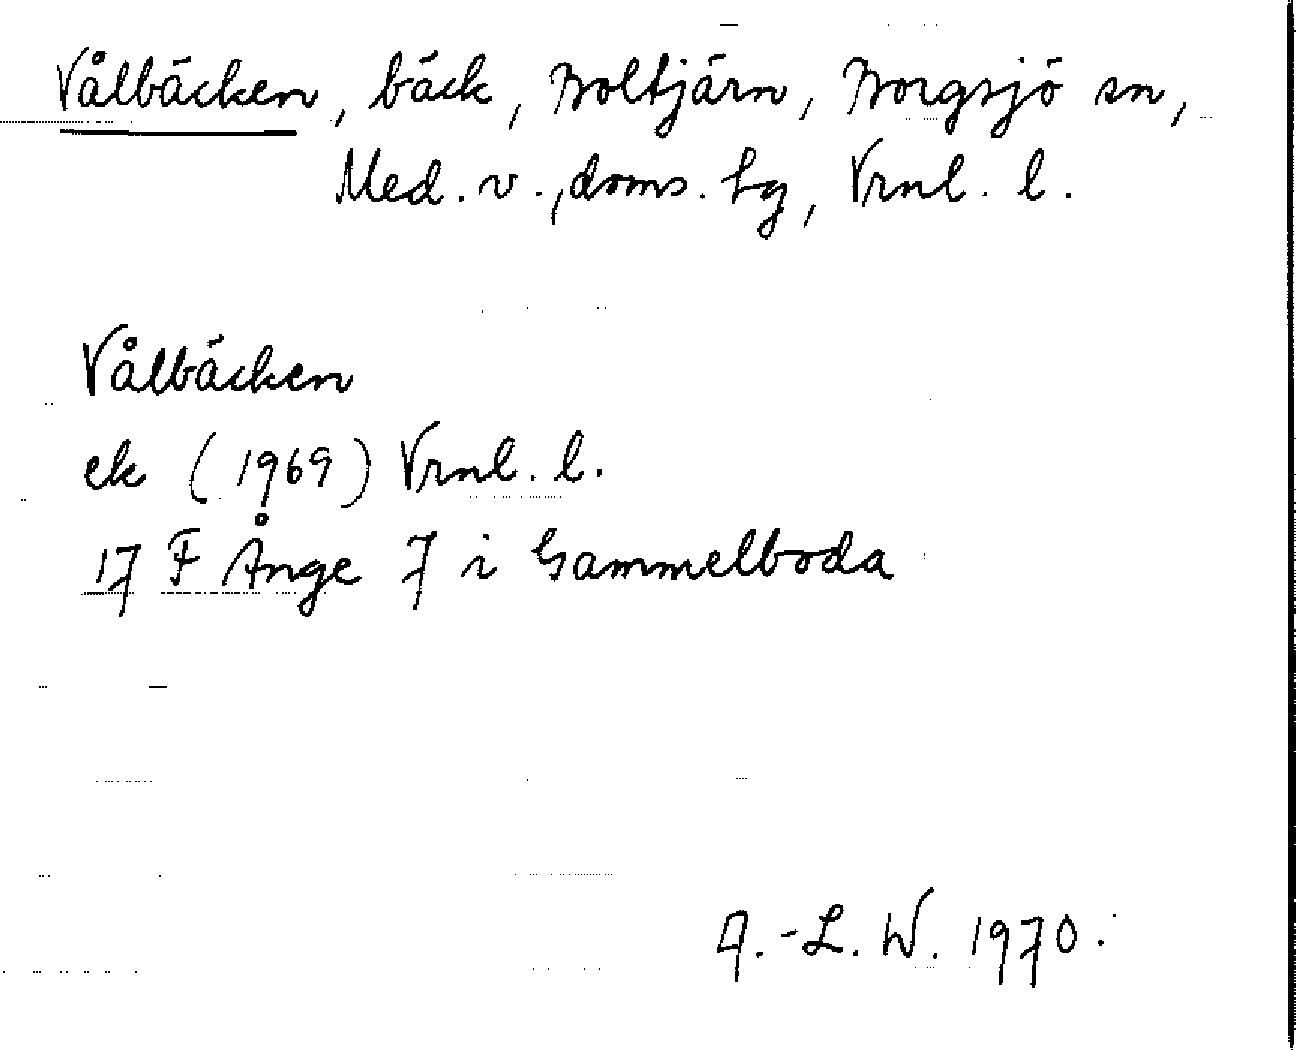 Vålbäcken, bäck, Boltjärn, Borgsjö sn,
Med. v., doms. hg, Vrnl. l.
Vålbäcken
ek (1969) Vrnl. l.
17 F Ånge 7 i Gammelboda
A.-L. W. 1970.